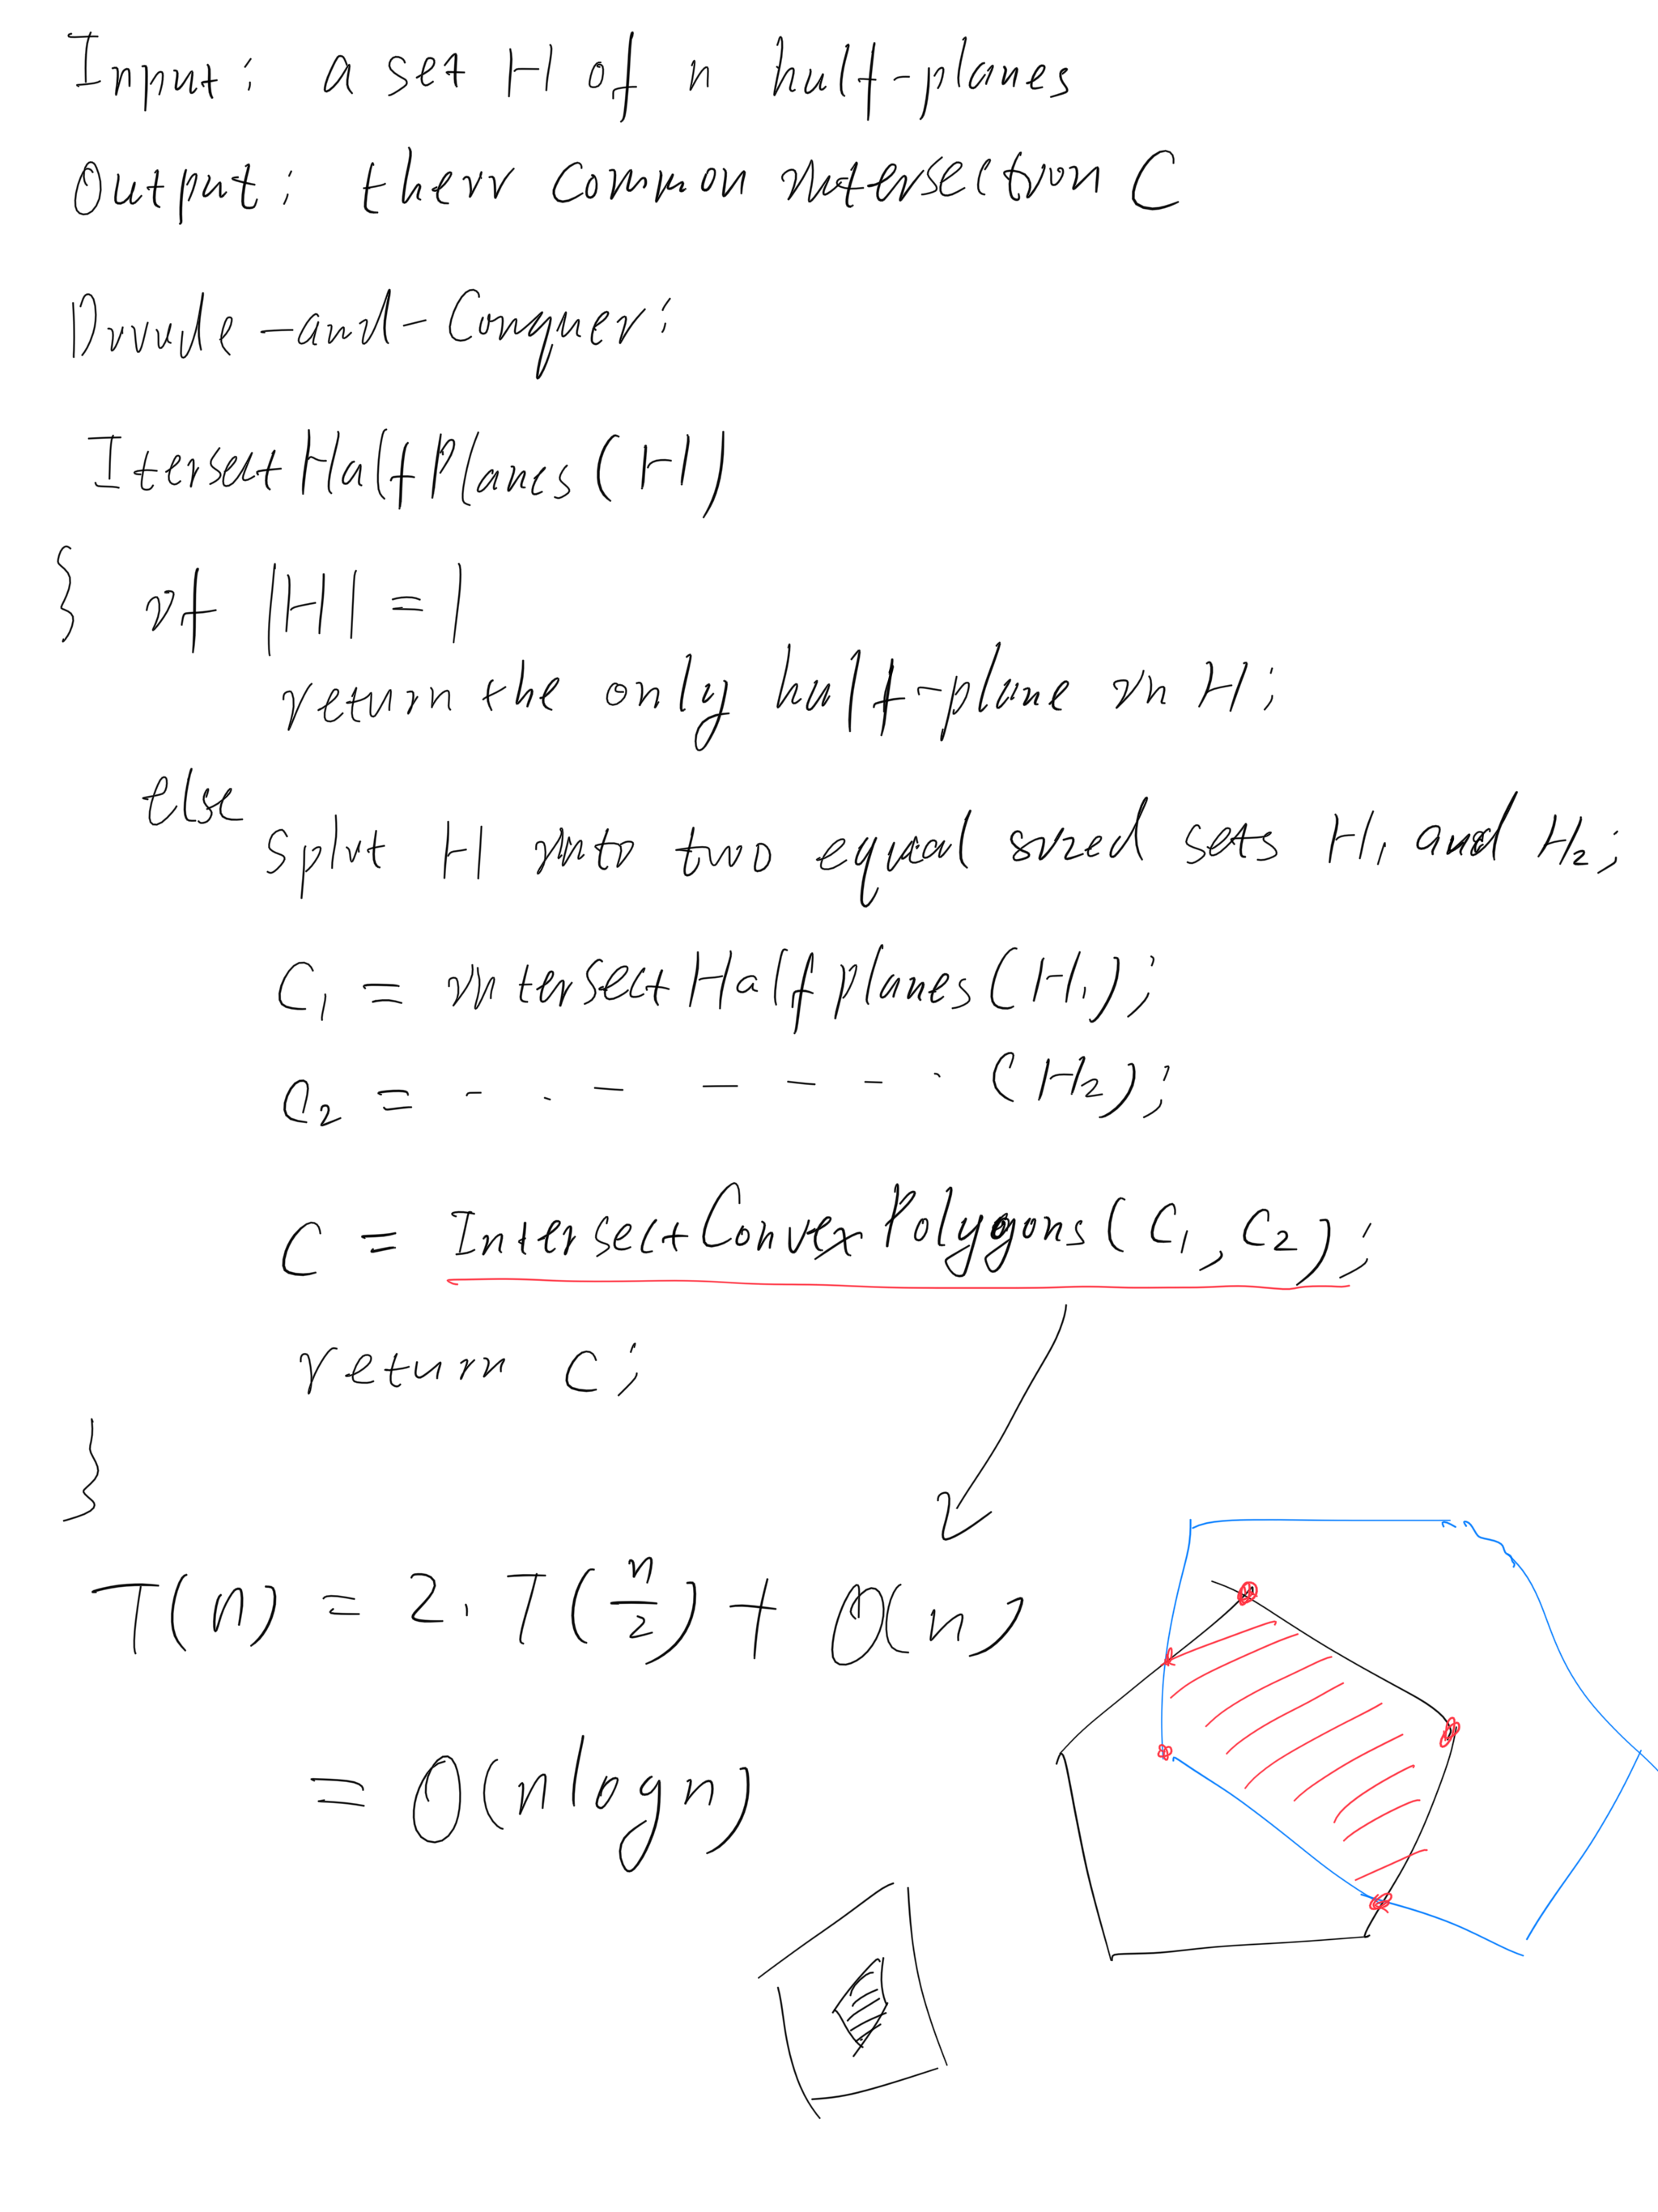 Input: a set H of n half-planes
Output: their common intersection C
Divide-and-Conquer:
ItersectHalfPlanes(H)
{ if |H| = 1
return the only half-plane in H;
else
split H into two equal sized sets H₁ and H₂;
C₁ = intersectHalfplanes(H₁);
C₂ = - . - - - - · (H₂);
C = IntersectConvexPolygons(C₁, C₂);
return C;
}
T(n) = 2 · T(n/2) + O(n)
= O(n log n)